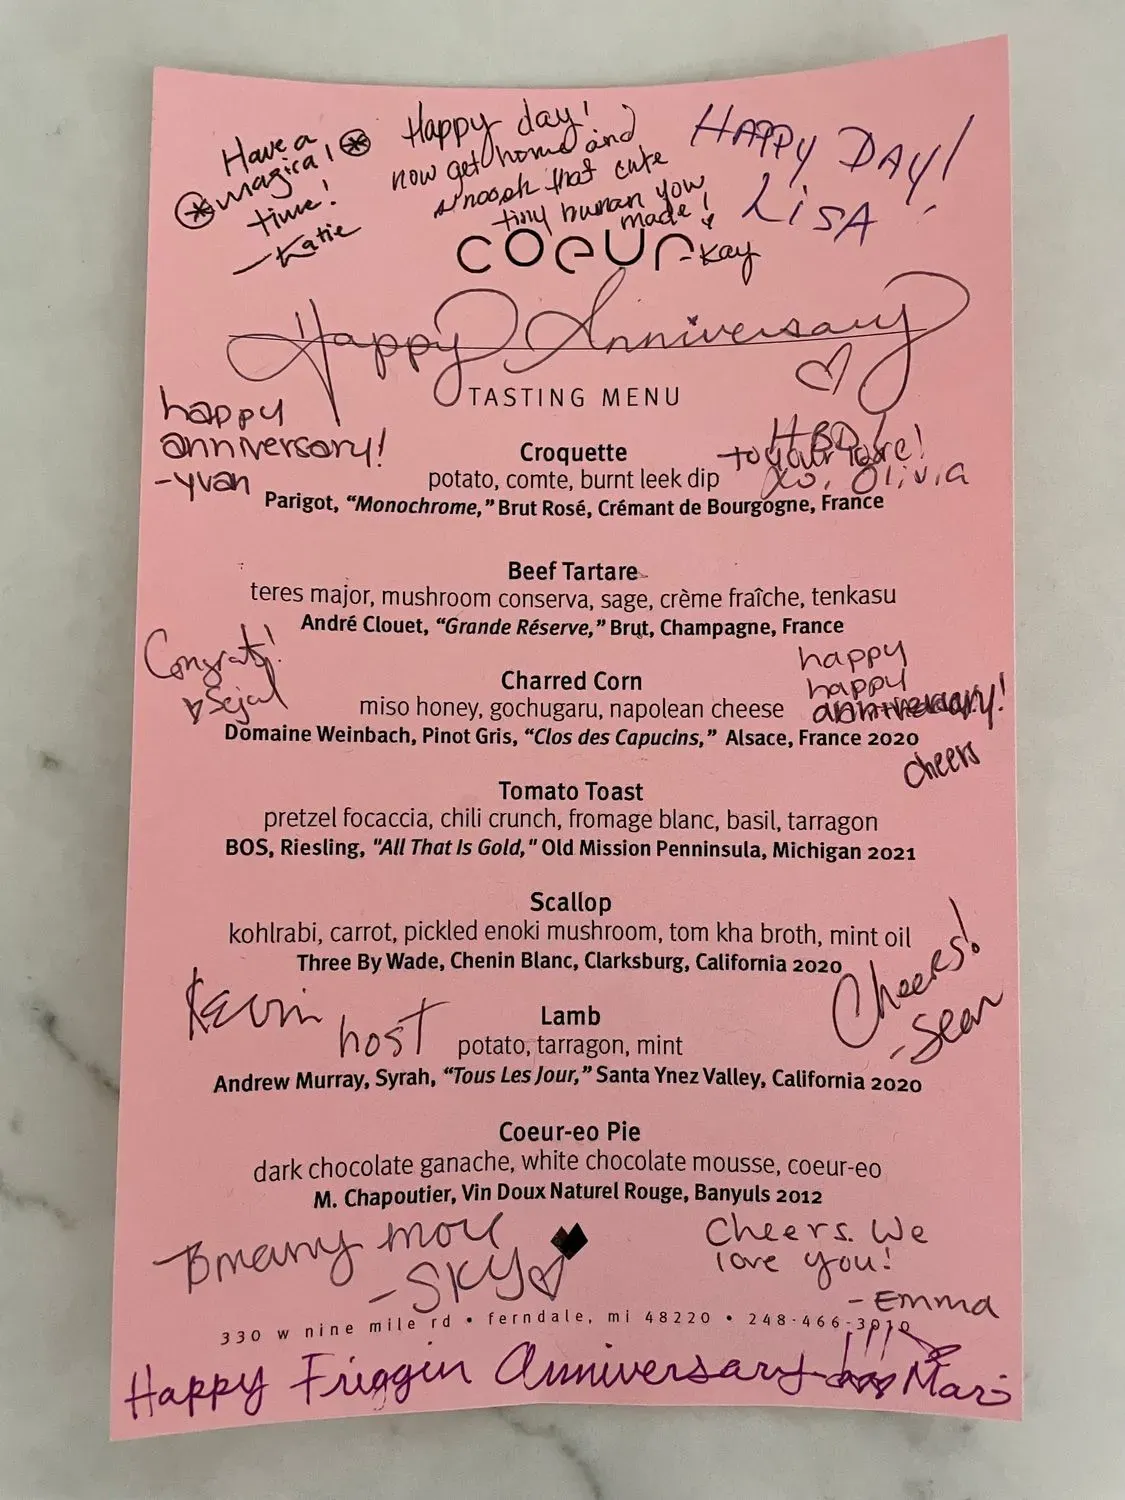 Have a
magical
time!
-Katie
Happy day!
now get home and
smooch that cute
tiny human you
made!
-Kay
HAPPY DAY!
LISA
coeur
Happy Anniversary
TASTING MENU
happy
anniversary!
-yvan
HBD!
to your love!
xo, Olivia
Croquette
potato, comte, burnt leek dip
Parigot, “Monochrome,” Brut Rosé, Crémant de Bourgogne, France
Beef Tartare
teres major, mushroom conserva, sage, crème fraîche, tenkasu
André Clouet, “Grande Réserve,” Brut, Champagne, France
Congrats!
Sejal
happy
happy
anniversary!
cheers
Charred Corn
miso honey, gochugaru, napolean cheese
Domaine Weinbach, Pinot Gris, “Clos des Capucins,” Alsace, France 2020
Tomato Toast
pretzel focaccia, chili crunch, fromage blanc, basil, tarragon
BOS, Riesling, "All That Is Gold," Old Mission Penninsula, Michigan 2021
Scallop
kohlrabi, carrot, pickled enoki mushroom, tom kha broth, mint oil
Three By Wade, Chenin Blanc, Clarksburg, California 2020
Kevin
host
Cheers!
-Sean
Lamb
potato, tarragon, mint
Andrew Murray, Syrah, “Tous Les Jour,” Santa Ynez Valley, California 2020
Coeur-eo Pie
dark chocolate ganache, white chocolate mousse, coeur-eo
M. Chapoutier, Vin Doux Naturel Rouge, Banyuls 2012
many more
-SKY
Cheers. We
love you!
-Emma
330 w nine mile rd • ferndale, mi 48220 • 248-466-3010
Happy Friggin Anniversary Mari